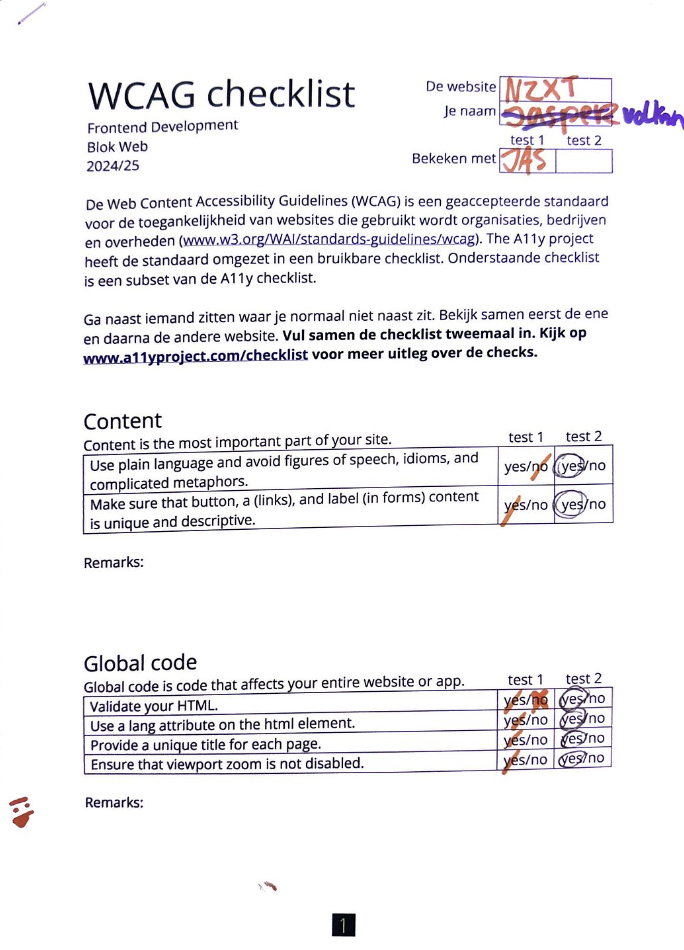 WCAG checklist
Frontend Development
Blok Web
2024/25
De website NZXT
Je naam Jasper volkan
test 1 test 2
Bekeken met JAS
De Web Content Accessibility Guidelines (WCAG) is een geaccepteerde standaard
voor de toegankelijkheid van websites die gebruikt wordt organisaties, bedrijven
en overheden (www.w3.org/WAI/standards-guidelines/wcag). The A11y project
heeft de standaard omgezet in een bruikbare checklist. Onderstaande checklist
is een subset van de A11y checklist.
Ga naast iemand zitten waar je normaal niet naast zit. Bekijk samen eerst de ene
en daarna de andere website. Vul samen de checklist tweemaal in. Kijk op
www.a11yproject.com/checklist voor meer uitleg over de checks.
Content
Content is the most important part of your site. test 1 test 2
Use plain language and avoid figures of speech, idioms, and yes/no yes/no
complicated metaphors.
Make sure that button, a (links), and label (in forms) content yes/no yes/no
is unique and descriptive.
Remarks:
Global code
Global code is code that affects your entire website or app. test 1 test 2
Validate your HTML. yes/no yes/no
Use a lang attribute on the html element. yes/no yes/no
Provide a unique title for each page. yes/no yes/no
Ensure that viewport zoom is not disabled. yes/no yes/no
Remarks:
1